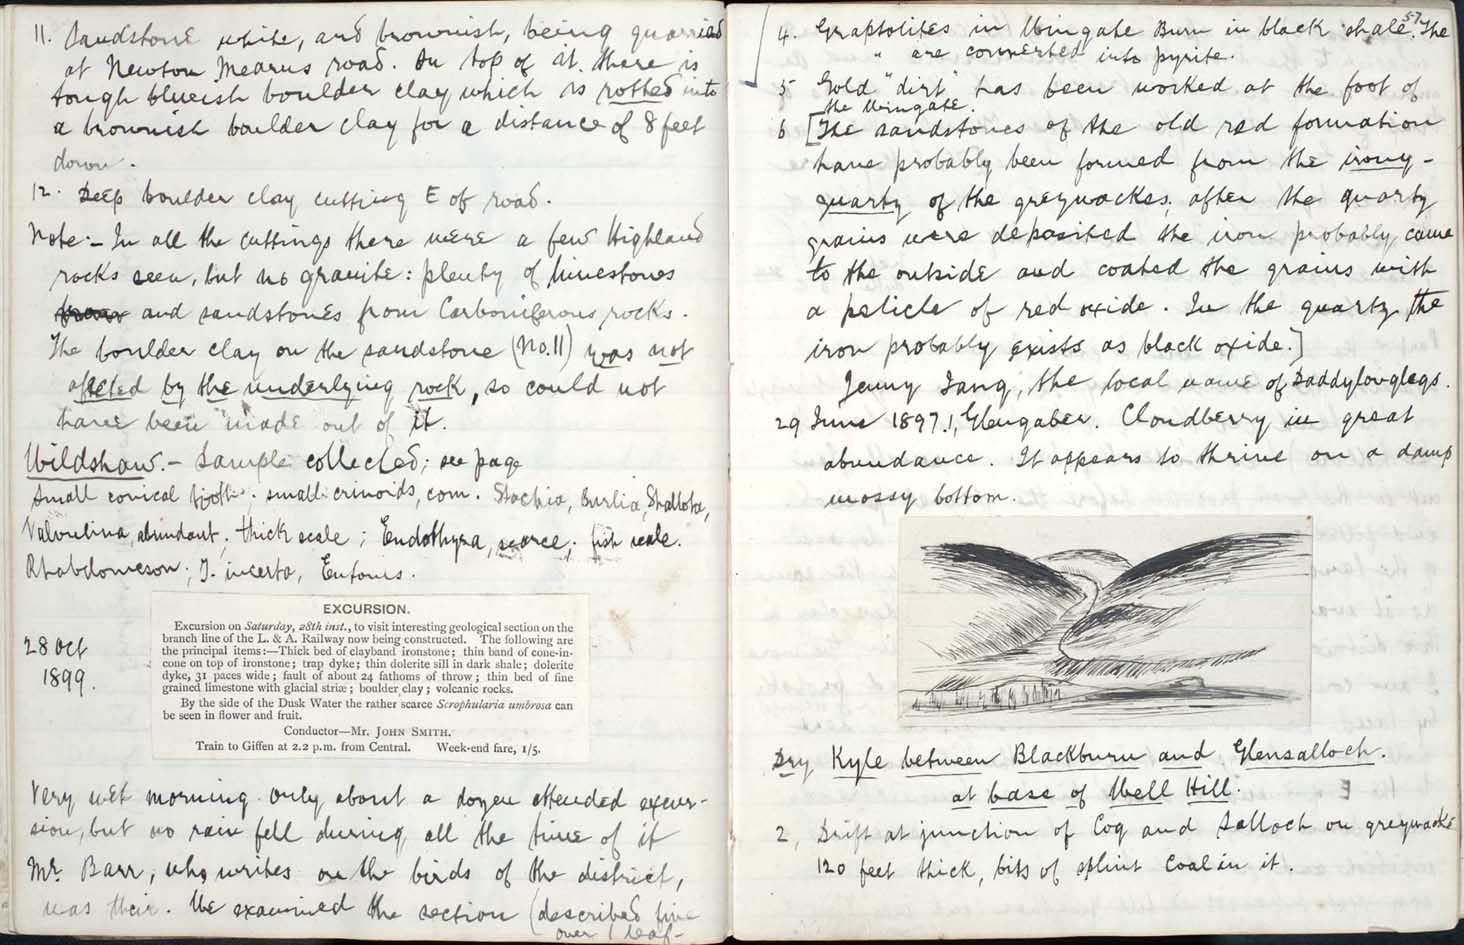 11. Sandstone white, and brownish, being quarried
at Newton Mearns road. On top of it there is
tough blueish boulder clay which is rotted into
a brownish boulder clay for a distance of 8 feet
down.
12. Deep boulder clay cutting E of road.
Note:- In all the cuttings there were a few Highland
rocks seen, but no granite: plenty of limestones
and sandstones from Carboniferous rocks.
The boulder clay on the sandstone (No. 11) was not
affected by the underlying rock, so could not
have been made out of it.
Wildshaw.- Sample collected; see page
Small conical; small crinoids, com. Stachia, Burlia,
Valvulina, abundant; thick scale; Endothyra, scarce; fish scale.
Rhabdomeson; T. incerta, Entomis.
28 Oct
1899.
EXCURSION.
Excursion on Saturday, 28th inst., to visit interesting geological section on the
branch line of the L. & A. Railway now being constructed. The following are
the principal items:—Thick bed of clayband ironstone; thin band of cone-in-
cone on top of ironstone; trap dyke; thin dolerite sill in dark shale; dolerite
dyke, 31 paces wide; fault of about 24 fathoms of throw; thin bed of fine
grained limestone with glacial striæ; boulder clay; volcanic rocks.
By the side of the Dusk Water the rather scarce Scrophularia umbrosa can
be seen in flower and fruit.
Conductor—Mr. JOHN SMITH.
Train to Giffen at 2.2 p.m. from Central. Week-end fare, 1/5.
Very wet morning. Only about a dozen attended excur-
sion, but no rain fell during all the time of it
Mr. Barr, who writes on the birds of the district,
was their. We examined the section (described five
over leaf-
57
4. Graptolites in Wingate Burn in black shale. The
" are converted into pyrite.
5 Gold "dirt" has been worked at the foot of
the Wingate.
6 [The sandstones of the old red formation
have probably been formed from the irony-
quartz of the greywackes, after the quartz
grains were deposited the iron probably came
to the outside and coated the grains with
a pelicle of red oxide. In the quartz the
iron probably exists as black oxide.]
Jenny Tang, the local name of Daddylonglegs.
29 June 1897.!, Glengaber. Cloudberry in great
abundance. It appears to thrive on a damp
mossy bottom.
Dry Kyle between Blackburn and Glensalloch.
at base of Well Hill.
2, Drift at junction of Cog and Salloch on greywacke
120 feet thick, bits of splint coal in it.